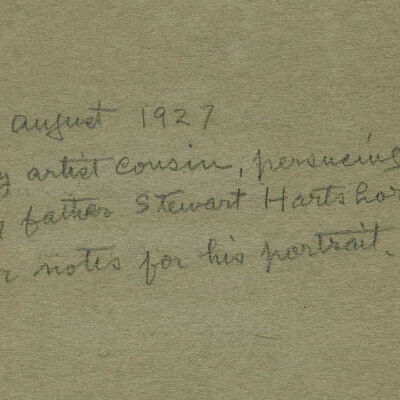 august 1927
y artist cousin, persueing
y father Stewart Hartshor
r notes for his portrait.